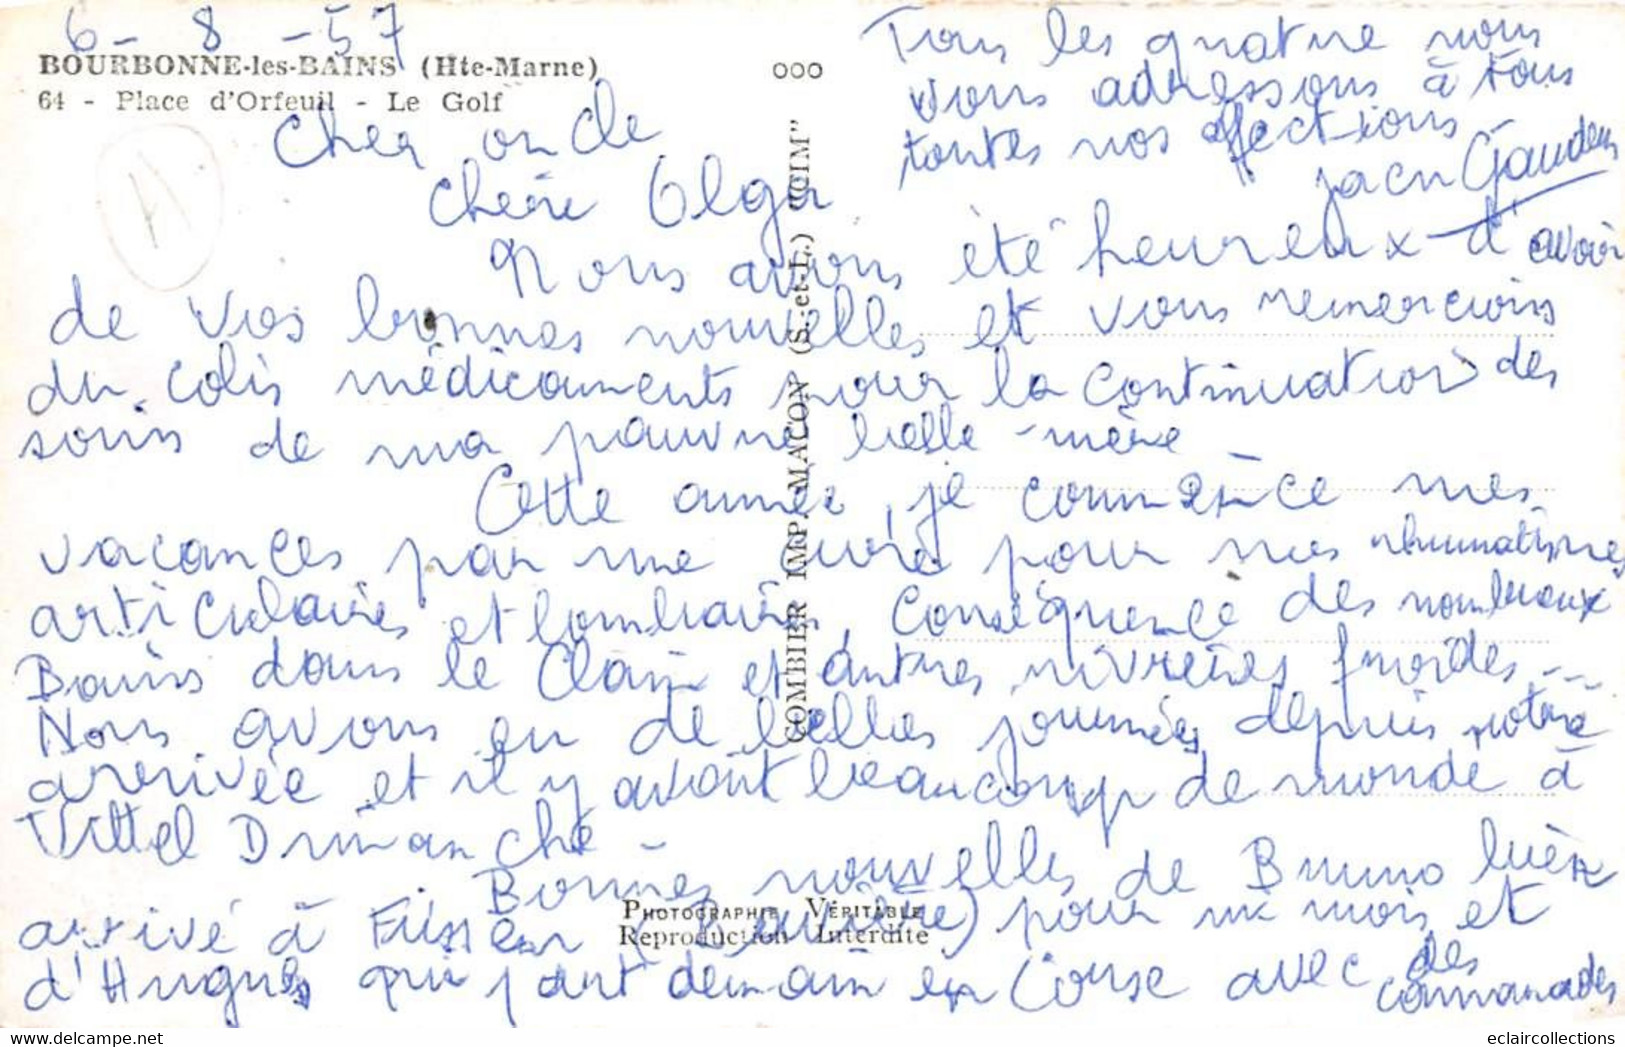 6-8-57
BOURBONNE-les-BAINS (Hte-Marne)
64 - Place d'Orfeuil - Le Golf
Cher oncle
Chère Olga
Nous avons été heureux d'avoir
de vos bonnes nouvelles et vous remercions
du colis médicaments pour la continuation des
soins de ma pauvre belle-mère
Cette année, je commence mes
vacances par une cure pour mes rhumatismes
articulaires et lombaires, conséquence des nombreux
Bains dans le Clain et autres rivières froides...
Nous avons eu de belles journées depuis notre
arrivée et il y avait beaucoup de monde à
Vittel Dimanche -
Bonnes nouvelles de Bruno bien
arrivé à Füssen (Bavière) pour un mois et
d'Hugues qui part demain en Corse avec des
camarades
Tous les quatre nous
vous adressons à tous
toutes nos affections
ooo
COMBIER IMP. MACON (S.-et-L.) "CIM"
PHOTOGRAPHIE VÉRITABLE
Reproduction Interdite
eclaircollections